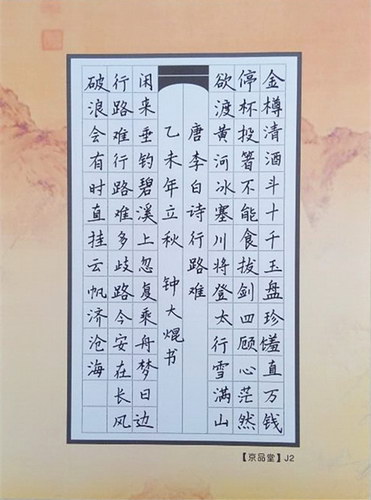 金樽清酒斗十千玉盘珍馐直万钱
停杯投箸不能食拔剑四顾心茫然
欲渡黄河冰塞川将登太行雪满山
唐李白诗行路难
乙未年立秋 钟大焜书
闲来垂钓碧溪上忽复乘舟梦日边
行路难行路难多歧路今安在长风
破浪会有时直挂云帆济沧海
【京品堂】J2